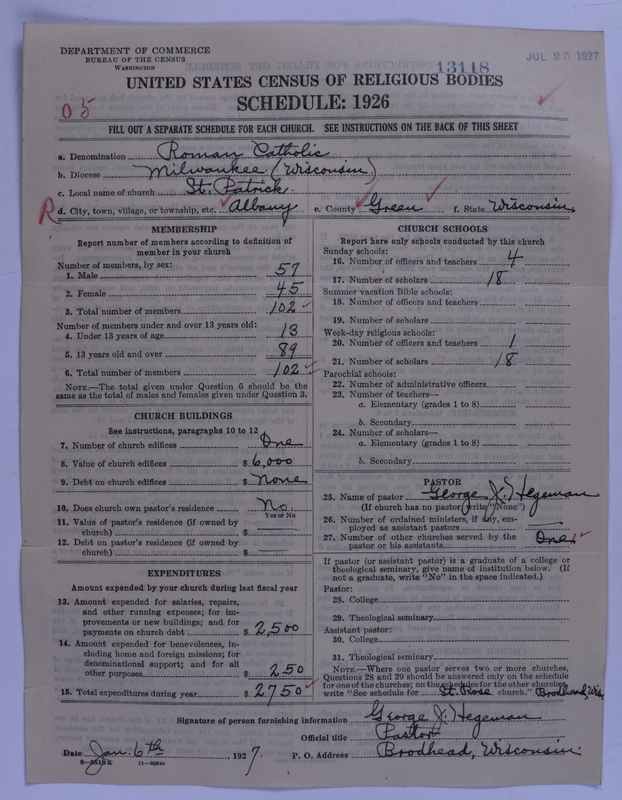 DEPARTMENT OF COMMERCE
BUREAU OF THE CENSUS
WASHINGTON
13118
JUL 25 1927
UNITED STATES CENSUS OF RELIGIOUS BODIES
SCHEDULE: 1926
05
FILL OUT A SEPARATE SCHEDULE FOR EACH CHURCH. SEE INSTRUCTIONS ON THE BACK OF THIS SHEET
a. Denomination Roman Catholic
b. Diocese Milwaukee (Wisconsin)
c. Local name of church St. Patrick.
R d. City, town, village, or township, etc. Albany e. County Green f. State Wisconsin.
MEMBERSHIP
Report number of members according to definition of
member in your church
Number of members, by sex:
1. Male 57
2. Female 45
3. Total number of members 102
Number of members under and over 13 years old:
4. Under 13 years of age 13
5. 13 years old and over 89
6. Total number of members 102
NOTE.—The total given under Question 6 should be the
same as the total of males and females given under Question 3.
CHURCH BUILDINGS
See instructions, paragraphs 10 to 12
7. Number of church edifices One
8. Value of church edifices $ 6,000
9. Debt on church edifices $ None
10. Does church own pastor's residence No.
Yes or No
11. Value of pastor's residence (if owned by
church) $
12. Debt on pastor's residence (if owned by
church) $
EXPENDITURES
Amount expended by your church during last fiscal year
13. Amount expended for salaries, repairs,
and other running expenses; for im-
provements or new buildings; and for
payments on church debt $ 2,500
14. Amount expended for benevolences, in-
cluding home and foreign missions; for
denominational support; and for all
other purposes $ 250
15. Total expenditures during year $ 2750
CHURCH SCHOOLS
Report here only schools conducted by this church
Sunday schools:
16. Number of officers and teachers 4
17. Number of scholars 18
Summer vacation Bible schools:
18. Number of officers and teachers
19. Number of scholars
Week-day religious schools:
20. Number of officers and teachers 1
21. Number of scholars 18
Parochial schools:
22. Number of administrative officers
23. Number of teachers—
a. Elementary (grades 1 to 8)
b. Secondary
24. Number of scholars—
a. Elementary (grades 1 to 8)
b. Secondary
PASTOR
25. Name of pastor George J. Hegeman
(If church has no pastor, write "None")
26. Number of ordained ministers, if any, em-
ployed as assistant pastors
27. Number of other churches served by the
pastor or his assistants One
If pastor (or assistant pastor) is a graduate of a college or
theological seminary, give name of institution below. (If
not a graduate, write "No" in the space indicated.)
Pastor:
28. College
29. Theological seminary
Assistant pastor:
30. College
31. Theological seminary
NOTE.—Where one pastor serves two or more churches,
Questions 28 and 29 should be answered only on the schedule
for one of the churches; on the schedules for the other churches,
write "See schedule for St. Rose church." Brodhead, Wis.
Signature of person furnishing information George J. Hegeman
Official title Pastor
Date Jan. 6th, 1927. P. O. Address Brodhead, Wisconsin.